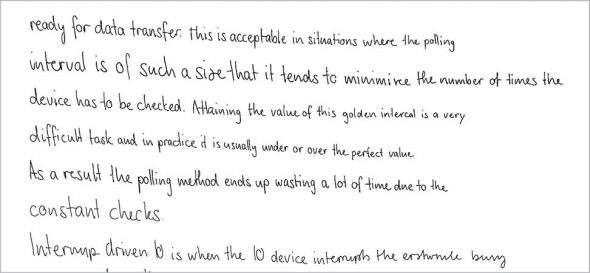 ready for data transfer. This is acceptable in situations where the polling
interval is of such a size that it tends to minimize the number of times the
device has to be checked. Attaining the value of this golden interval is a very
difficult task and in practice it is usually under or over the perfect value.
As a result the polling method ends up wasting a lot of time due to the
constant checks.
Interrup driven IO is when the IO device interrupts the erstwhile busy